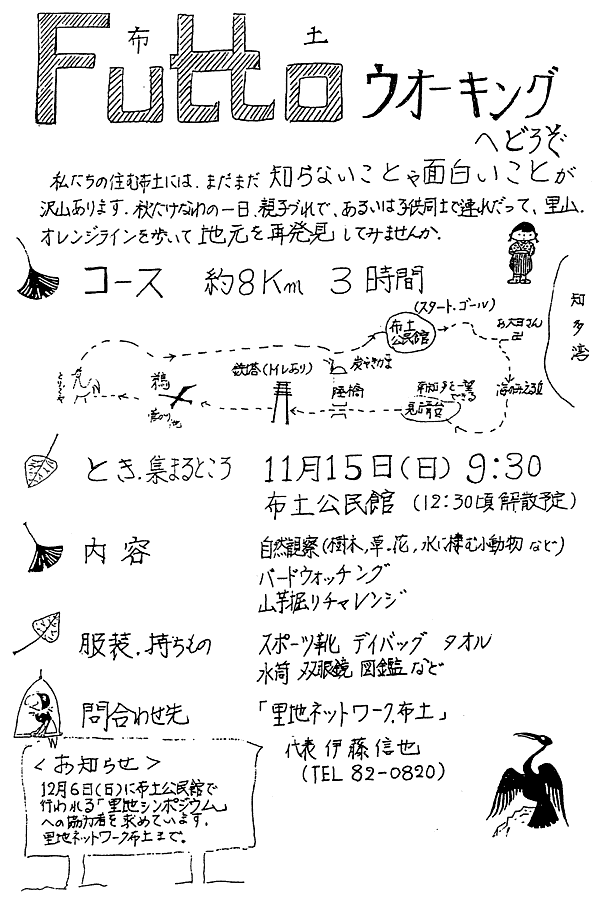 布土
Futto ウオーキング
へどうぞ
私たちの住む布土には、まだまだ 知らないことや面白いことが
沢山あります。秋たけなわの一日、親子づれで、あるいは子供同士で連れだって、里山、
オレンジラインを歩いて 地元を再発見 してみませんか。
コース 約8Km 3時間
(スタート、ゴール)
布土
公民館
お大日さん
知多湾
鉄塔(トイレあり)
炭やきがま
陸橋
鵜
見晴台
海のみえる丘
とき、集まるところ 11月15日(日) 9:30
布土公民館 (12:30頃解散予定)
内容 自然観察(樹木,草,花,水に棲む小動物 など)
バードウォッチング
山芋掘りチャレンジ
服装、持ちもの スポーツ靴 デイバッグ タオル
水筒 双眼鏡 図鑑 など
問合わせ先 「里地ネットワーク布土」
代表 伊藤信也
(TEL 82-0820)
<お知らせ>
12月6日(日)に布土公民館で
行われる「里地シンポジウム」
への協力者を求めています。
里地ネットワーク布土まで。